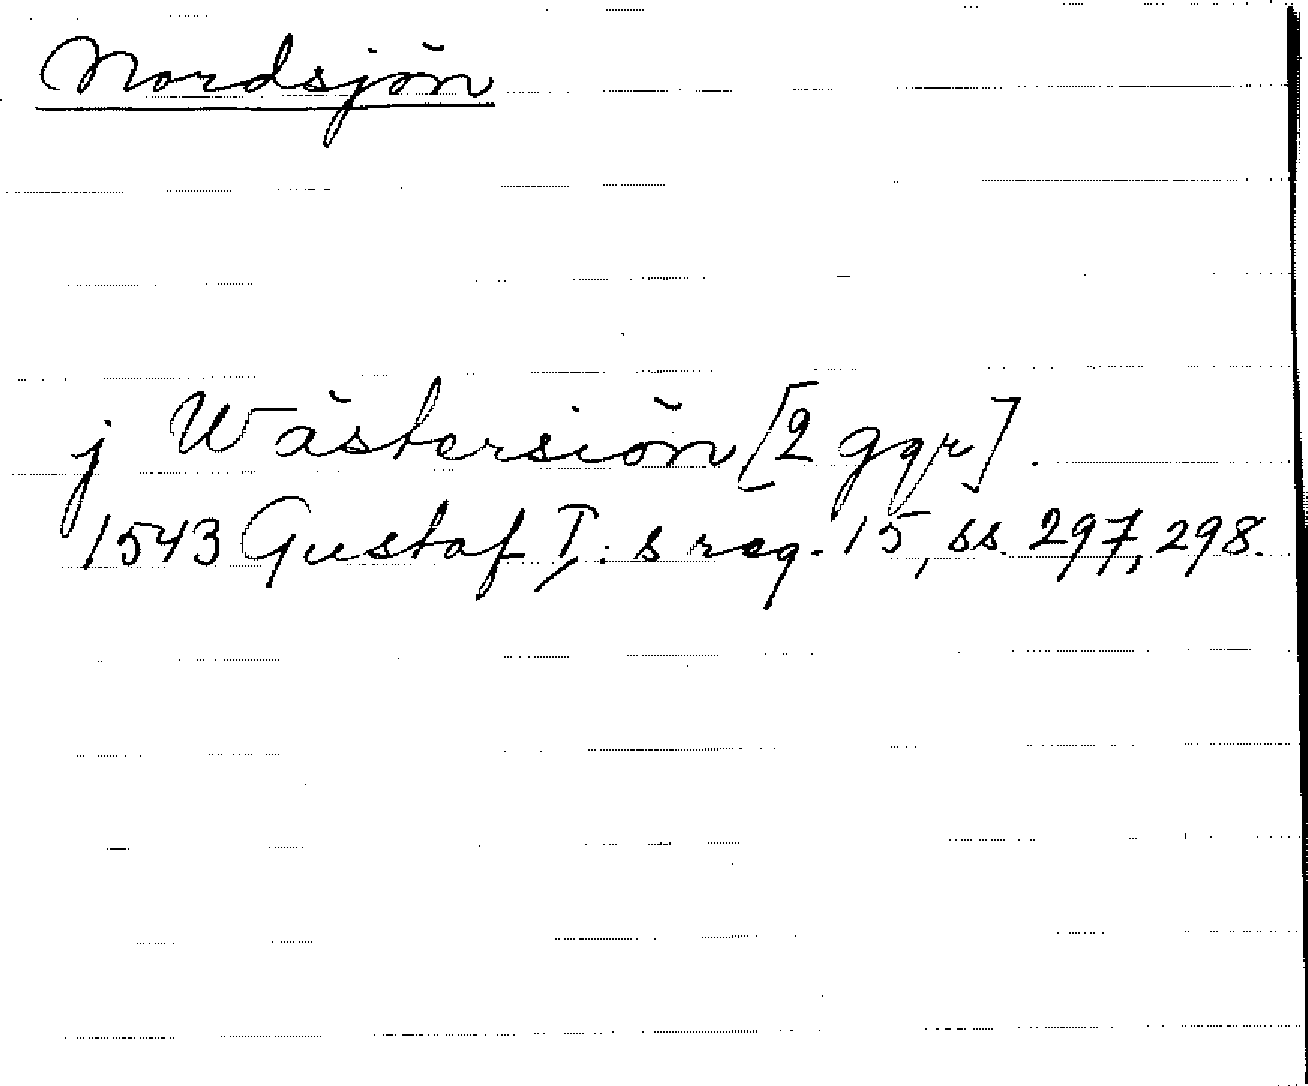 Nordsjön
j Wästersiön [2 ggr].
1543 Gustaf I:s reg. 15, ss. 297, 298.